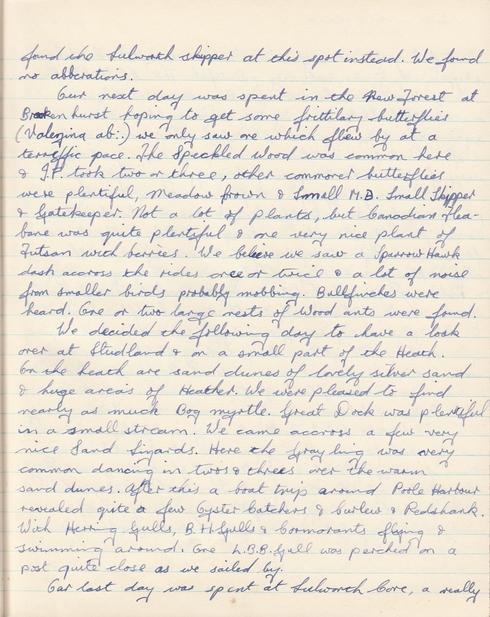 found the Lulworth skipper at this spot instead. We found
no abberations.
Our next day was spent in the New Forrest at
Brokenhurst hoping to get some frittilary butterflies
(Valezina ab:.) we only saw one which flew by at a
terriffic pace. The Speckled Wood was common here
& J.P. took two or three, other commoner butterflies
were plentiful, Meadow Brown & Small M.B. Small Skipper
& Gatekeeper. Not a lot of plants, but Canadian Flea-
bane was quite plentiful & one very nice plant of
Tutsan with berries. We believe we saw a Sparrow Hawk
dash accross the rides once or twice & a lot of noise
from smaller birds probably mobbing. Bullfinches were
heard. One or two large nests of Wood ants were found.
We decided the following day to have a look
over at Studland & on a small part of the Heath.
On the heath are sand dunes of lovely silver sand
& huge areas of Heather. We were pleased to find
nearly as much Bog myrtle. Great Dock was plentiful
in a small stream. We came accross a few very
nice Sand Lizards. Here the Grayling was very
common dancing in twos & threes over the warm
sand dunes. After this a boat trip around Poole Harbour
revealed quite a few Oyster Catchers & Curlew & Redshank.
With Herring Gulls, B.H.Gulls & Cormorants flying &
swimming around. One L.B.B.Gull was perched on a
post quite close as we sailed by.
Our last day was spent at Lulworth Cove, a really